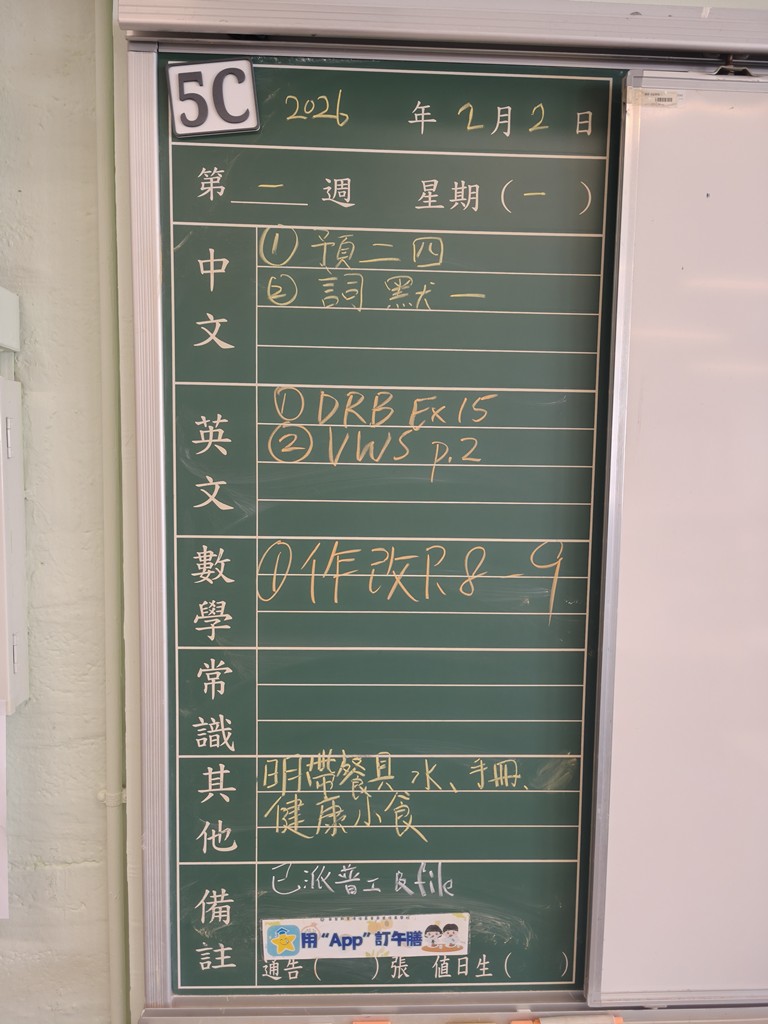 5C 2026 年 2 月 2 日
第 一 週 星期（一）
中文
① 預二四
② 詞默一
英文
① DRB Ex 15
② VWS p.2
數學
① 作改P.8-9
常識
其他
明帶餐具水、手冊、
健康小食
備註
已派普工及file
用“App”訂午膳
通告（ ）張 值日生（ ）